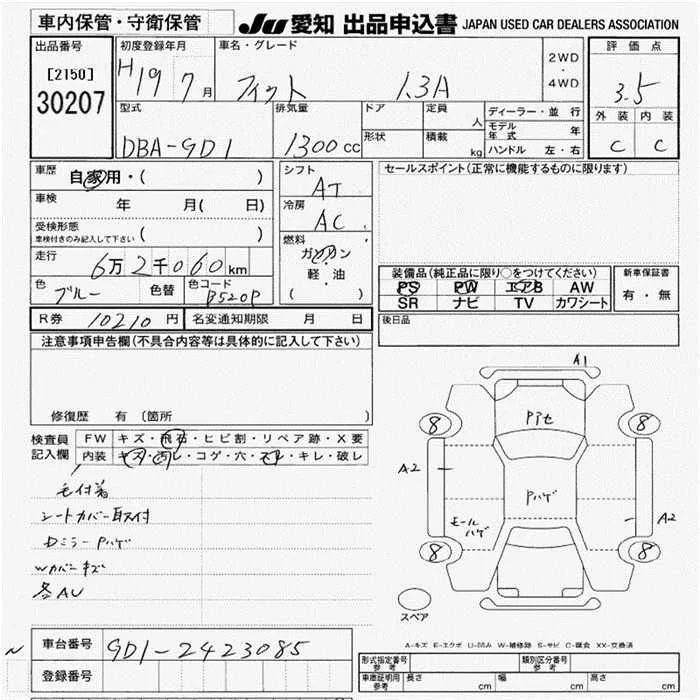 車内保管・守衛保管
JU 愛知 出品申込書 JAPAN USED CAR DEALERS ASSOCIATION
出品番号
[2150]
30207
初度登録年月
H19 7月
車名・グレード
フィット 1.3A
2WD
・
4WD
評価点
3.5
外装 内装
C C
型式
DBA-GD1
排気量
1300cc
ドア
形状
定員 人
積載 kg
ディーラー・並行
モデル年式 年
ハンドル 左・右
車歴 自家用・( )
車検 年 月( 日)
受検形態 ( )
車検付きのみ記入して下さい
走行 6万2千060km
色 ブルー 色替 色コード B520P
シフト
AT
冷房
AC
燃料
ガソリン
・
軽・油
( )
セールスポイント(正常に機能するものに限ります)
装備品(純正品に限り○をつけてください)
PS PW エアB AW
SR ナビ TV カワシート
新車保証書
有・無
R券 10210円 名変通知期限 月 日
後日品
注意事項申告欄(不具合内容等は具体的に記入して下さい)
修復歴 有 (箇所 )
検査員
記入欄
FW キズ・飛石・ヒビ割・リペア跡・X要
内装 キズ・汚レ・コゲ・穴・スレ・キレ・破レ
毛付着
シートカバー取付
Dミラー Pハゲ
Wカバーキズ
冬AU
A1
8 Pアセ 8
A2
Pハゲ
モール
ハゲ
A2
8 8
スペア
A-キズ E-エクボ U-凹み W-補修跡 S-サビ C-腐食 XX-交換済
車台番号 GD1-2423085
登録番号
形式指定番号
参考
類別区分番号
参考
車庫証明用
参考
長さ cm 幅 cm 高さ cm